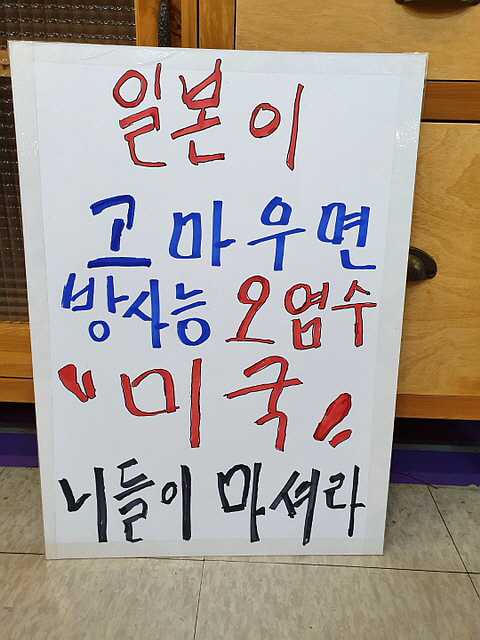 일본이
고마우면
방사능 오염수
"미국"
니들이 마셔라